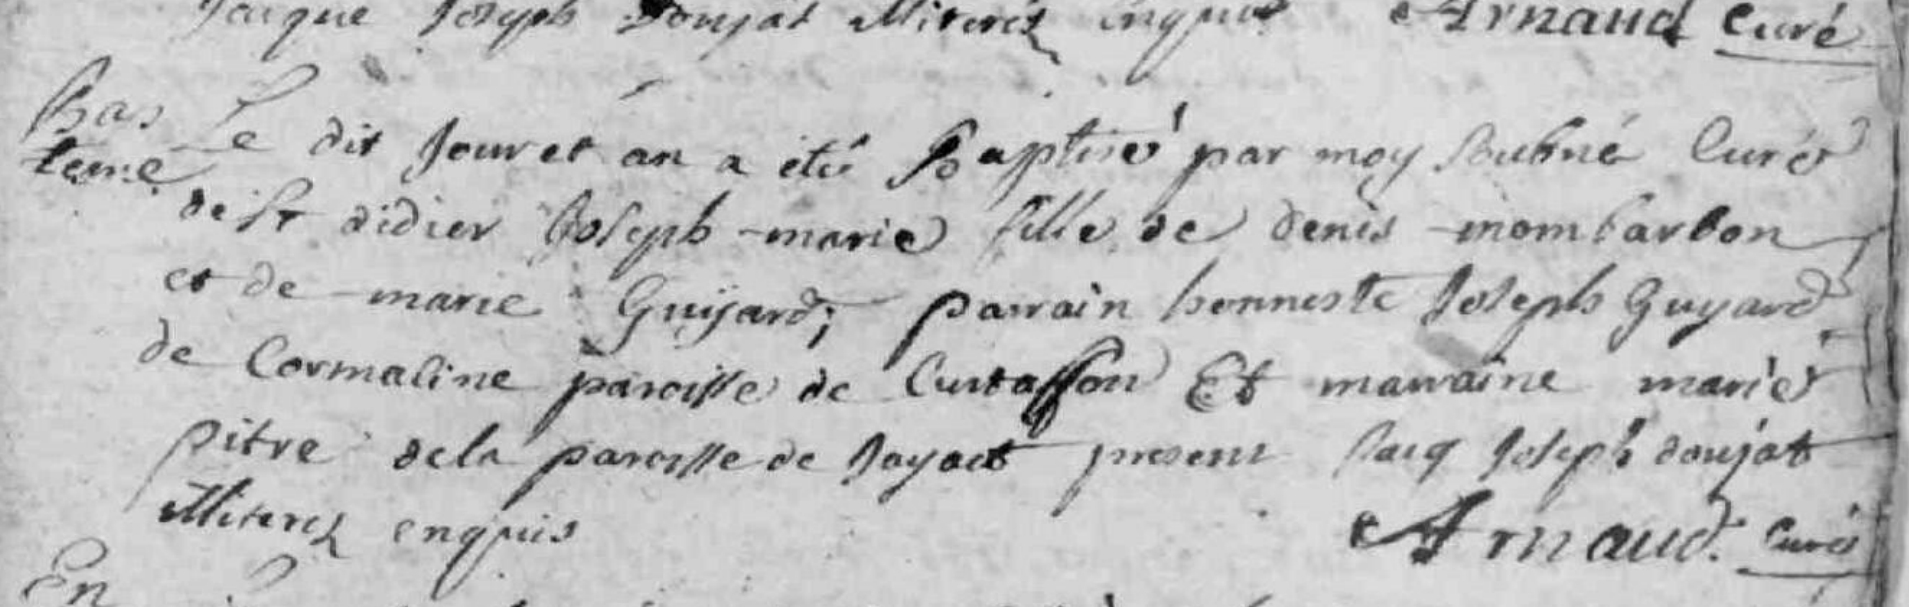 Jacque Joseph Doujat illiterés enquis Arnaud Curé
Bas
teme
Le dit Jour et an a été Baptisé par moy soubné Curé
de st didier Joseph-marie fille de denis mombarbon
et de marie Guÿard; parrain honneste Joseph Guyard
de Cormaline paroisse de Curtaffon Et marraine marie
pitre de la paroisse de Jayact present Jacq Joseph doujat
illiterés enquis Arnaud. Curé
En